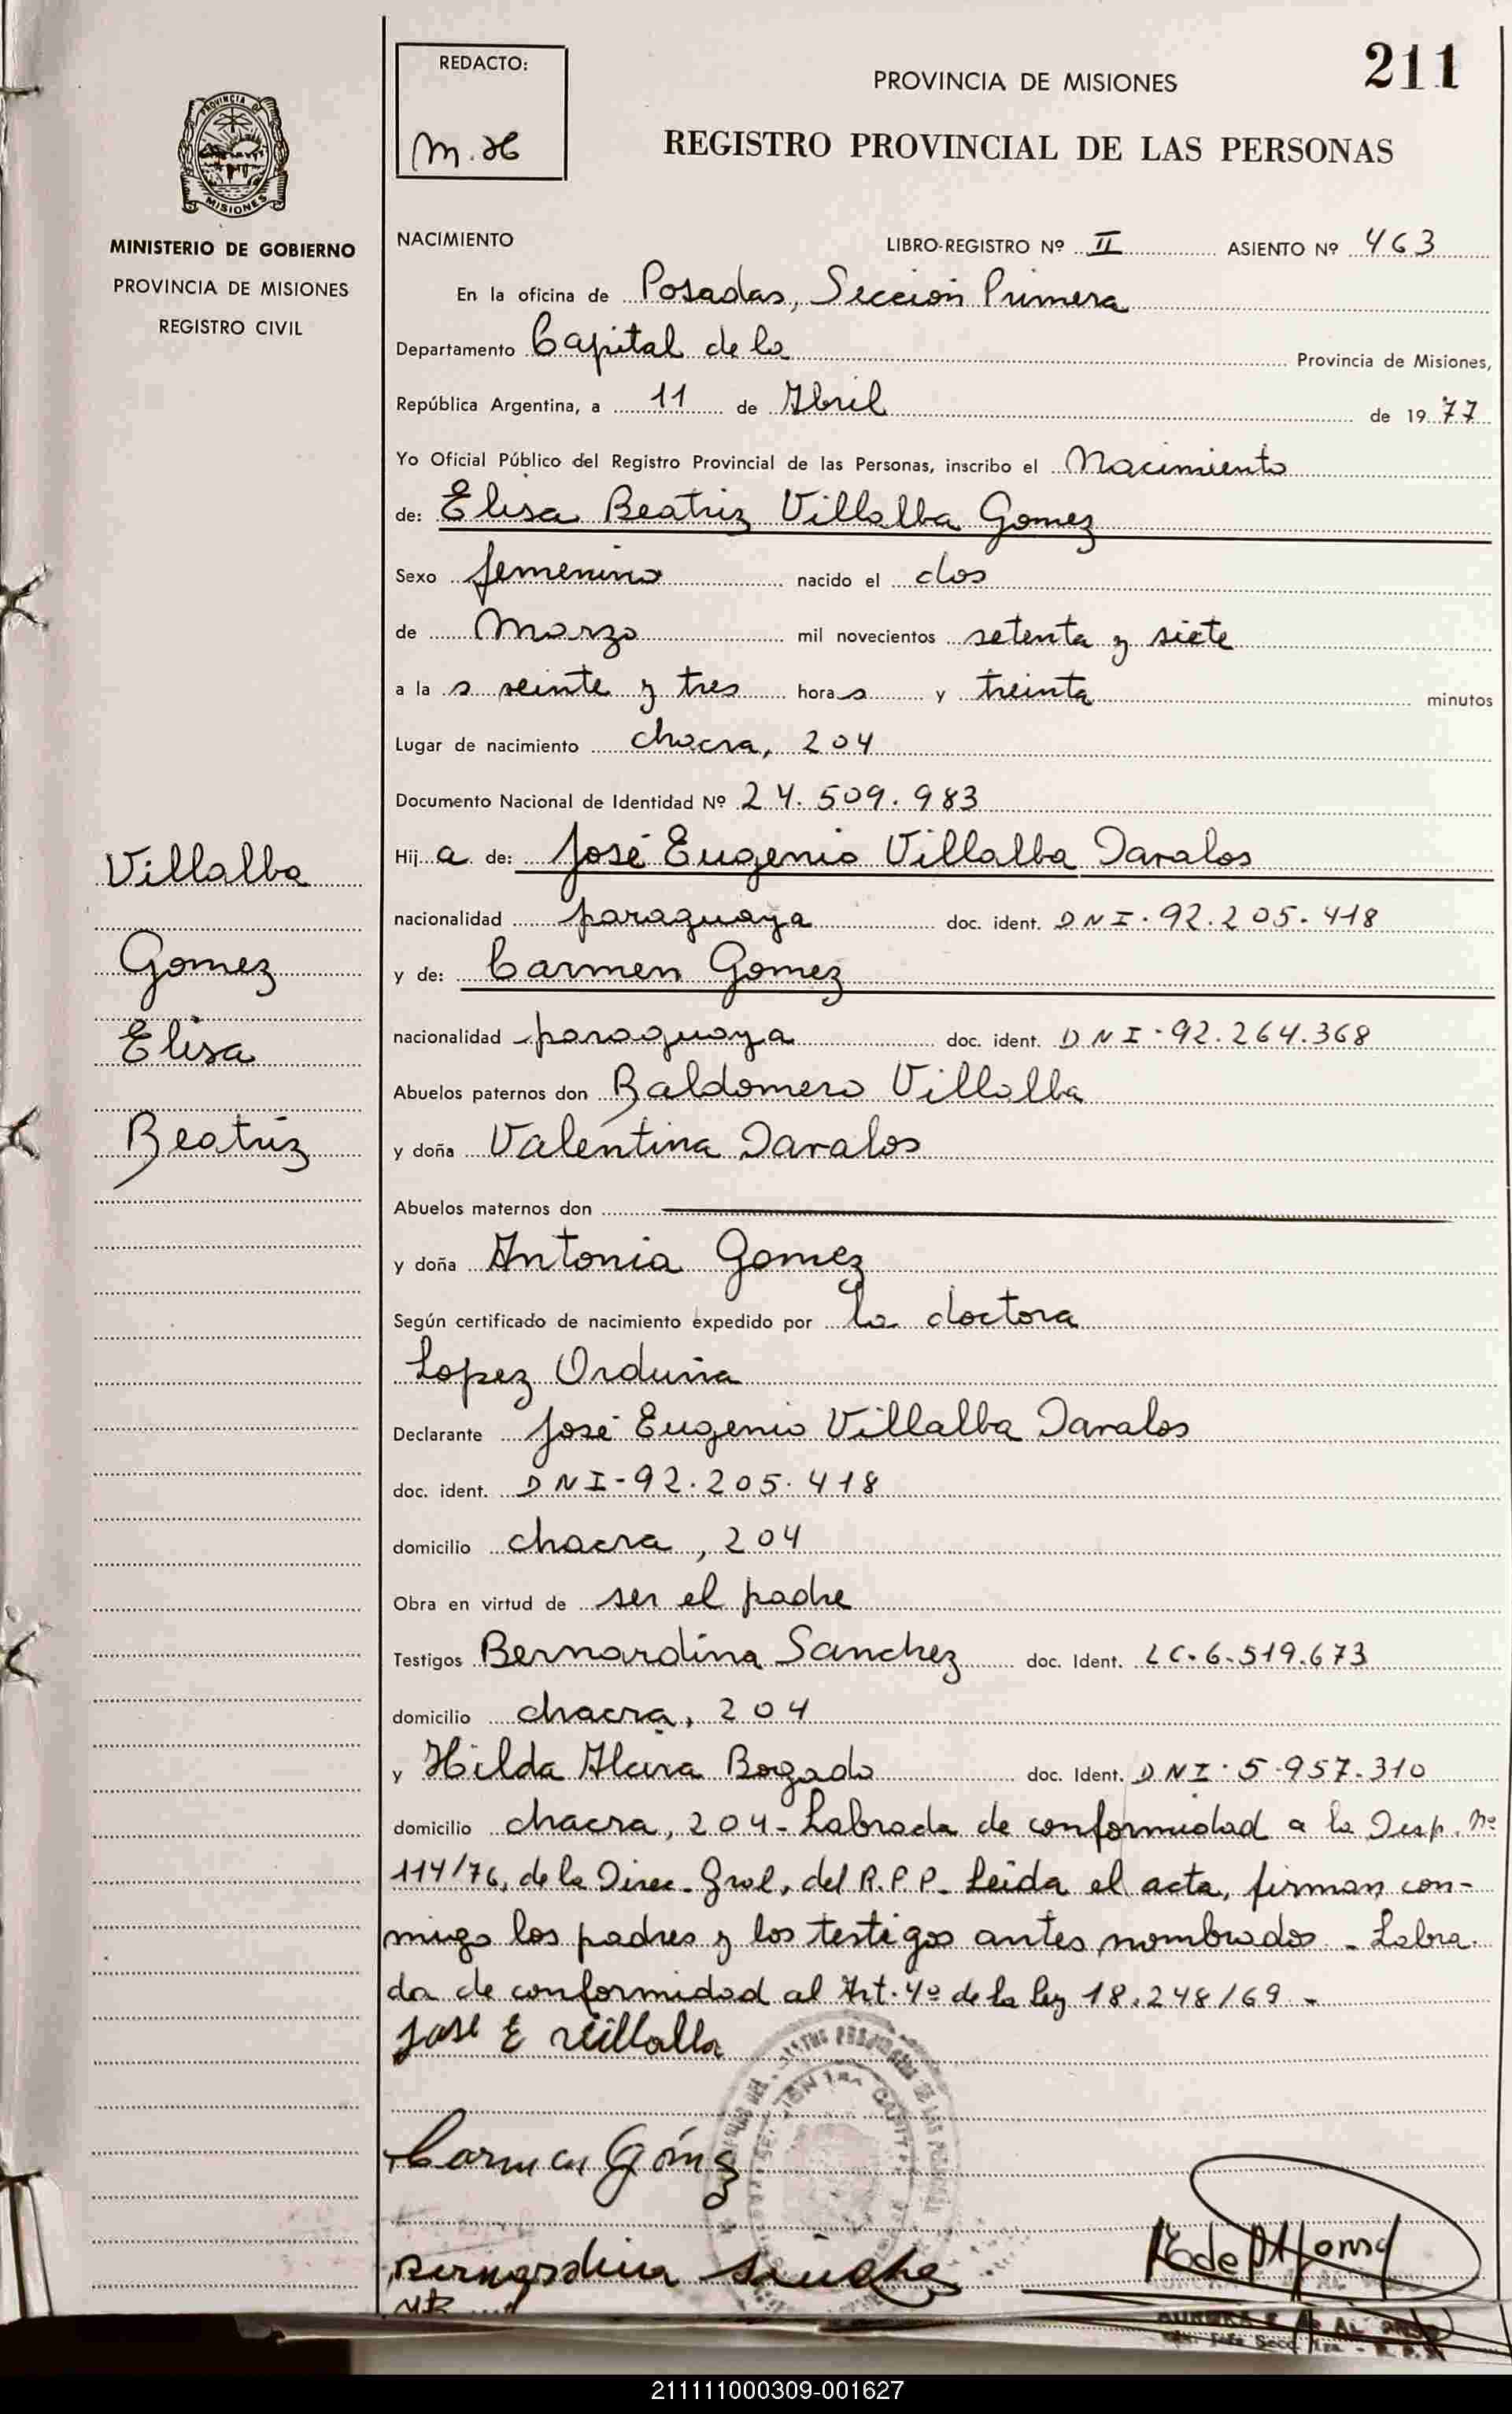 211
REDACTO:
M. H
PROVINCIA DE MISIONES
REGISTRO PROVINCIAL DE LAS PERSONAS
PROVINCIA DE
MISIONES
MINISTERIO DE GOBIERNO
PROVINCIA DE MISIONES
REGISTRO CIVIL
NACIMIENTO LIBRO-REGISTRO Nº II ASIENTO Nº 463
En la oficina de Posadas, Sección Primera
Departamento Capital de la Provincia de Misiones,
República Argentina, a 11 de Abril de 1977
Yo Oficial Público del Registro Provincial de las Personas, inscribo el Nacimiento
de: Elisa Beatriz Villalba Gomez
Sexo femenino nacido el dos
de Marzo mil novecientos setenta y siete
a la s veinte y tres hora s y treinta minutos
Lugar de nacimiento chacra, 204
Documento Nacional de Identidad Nº 24.509.983
Villalba
Gomez
Elisa
Beatriz
Hij a de: José Eugenio Villalba Davalos
nacionalidad paraguaya doc. ident. DNI-92.205.418
y de: Carmen Gomez
nacionalidad paraguaya doc. ident. DNI-92.264.368
Abuelos paternos don Baldomero Villalba
y doña Valentina Davalos
Abuelos maternos don
y doña Antonia Gomez
Según certificado de nacimiento expedido por la doctora
Lopez Orduña
Declarante José Eugenio Villalba Davalos
doc. ident. DNI-92.205.418
domicilio chacra, 204
Obra en virtud de ser el padre
Testigos Bernardina Sanchez doc. Ident. LC-6.519.673
domicilio chacra, 204
y Hilda Alcira Bogado doc. Ident. DNI-5.957.310
domicilio chacra, 204- Labrada de conformidad a la Disp. Nº
114/76, de la Direc. Gral, del R.P.P. Leida el acta, firman con-
migo los padres y los testigos antes nombrados - Labra-
da de conformidad al Art. 4º de la ley 18.248/69 -
José E Villalba
Carmen Gómez
Bernardina Sanche
211111000309-001627